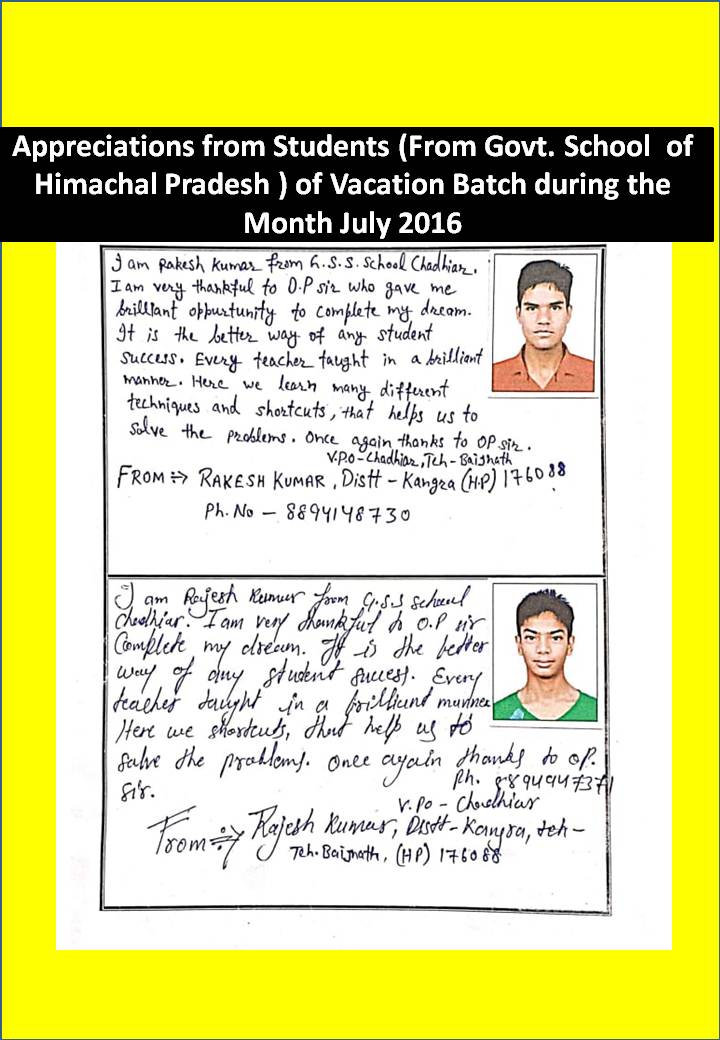 Appreciations from Students (From Govt. School of
Himachal Pradesh ) of Vacation Batch during the
Month July 2016
I am Rakesh Kumar from G.S.S. School Chadhiar.
I am very thankful to O.P sir who gave me
brilliant oppurtunity to complete my dream.
It is the better way of any student
success. Every teacher taught in a brilliant
manner. Here we learn many different
techniques and shortcuts, that helps us to
solve the problems. Once again thanks to OP sir.
V.P.O-Chadhiar, Teh-Baijnath
FROM ⇒ RAKESH KUMAR, Distt - Kangra (H.P) 176088
Ph. No - 8894148730
I am Rajesh Kumar from G.S.S school
Chadhiar. I am very thankful to O.P sir
Complete my dream. It is the better
way of any student success. Every
teacher taught in a brilliant manner
Here we shortcuts, that help us to
solve the problems. Once again thanks to OP.
Ph. 8894947371
sir.
V.P.O - Chadhiar
From ⇒ Rajesh Kumar, Distt-Kangra, teh-
Teh. Baijnath, (HP) 176088